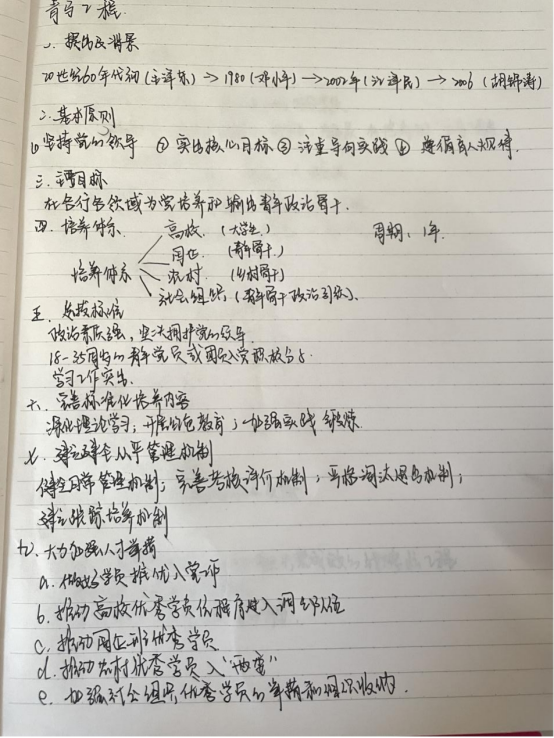 青马工程
一、提出及背景
20世纪60年代初（毛泽东）→1980（邓小平）→2002年（江泽民）→2006（胡锦涛）
二、基本原则
①坚持党的领导 ②突出核心目标 ③注重导向实践 ④遵循育人规律.
三、主要目标
在各行各领域为党培养和输出青年政治骨干.
四、培养体系 高校（大学生） 周期：1年.
国企（青年骨干.）
培养体系 农村（乡村骨干）
社会组织（青年骨干政治引领）.
五、选拔标准
政治素质强，坚决拥护党的领导
18-35周岁的青年党员或团员、入党积极分子.
学习工作突出.
六、完善标准化培养内容
深化理论学习；开展红色教育；加强实践锻炼.
七、建立健全从严管理机制
健全日常管理机制；完善考核评价机制；严格淘汰退出机制；
建立跟踪培养机制
九、大力加强人才举荐
a. 做好学员推优入党
b. 推动高校优秀学员依程序进入调
c. 推动国企到优秀学员
d. 推动农村优秀学员入"两委"
e. 加强社会组织优秀学员的举荐和组织吸纳.